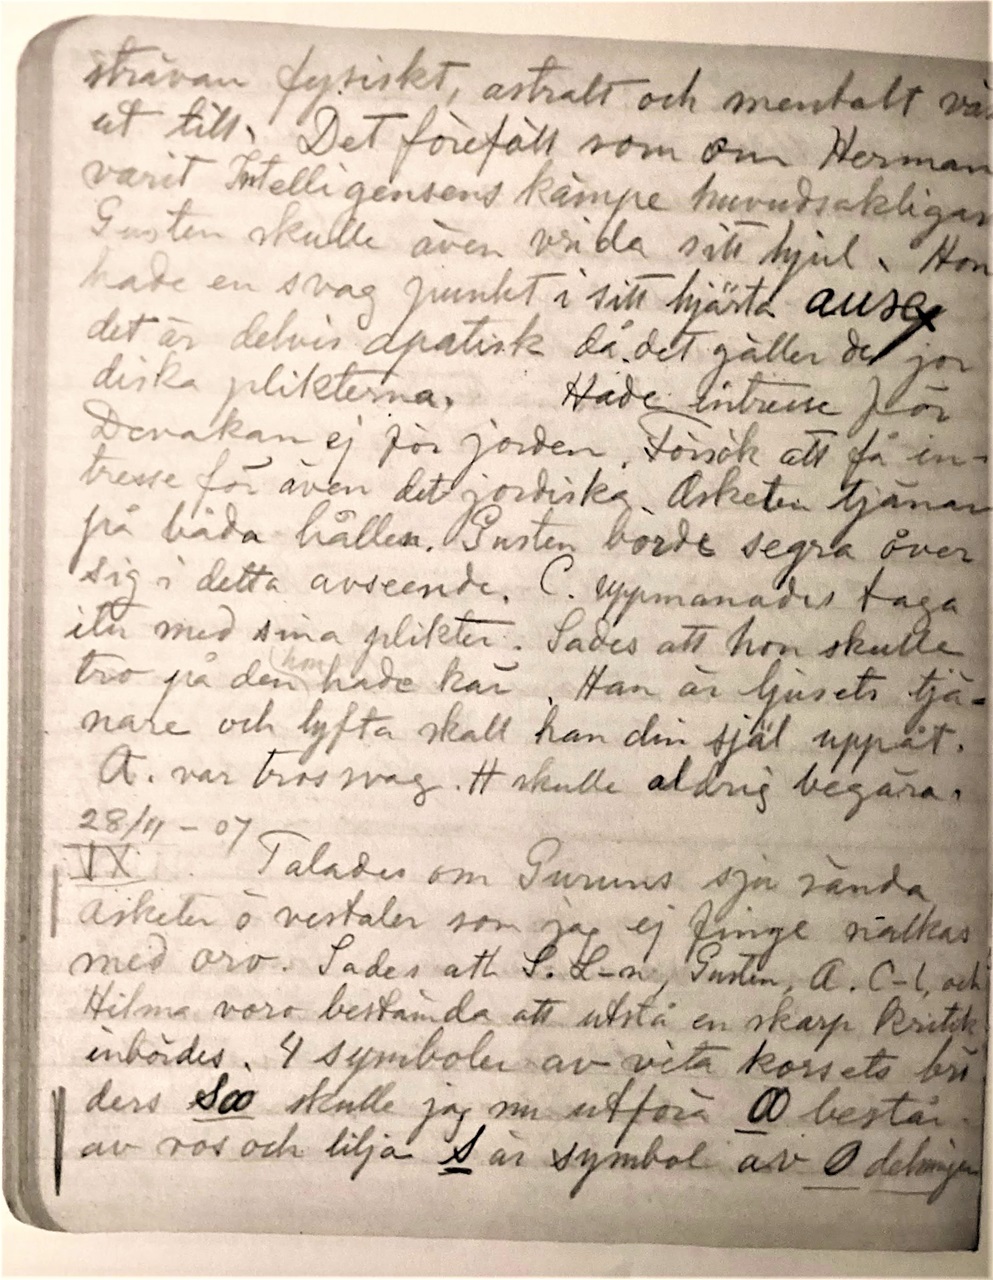 strävan fysiskt, astralt och mentalt
ut till. Det föreföll som om Herman
varit Intelligensens kämpe huvudsakligas
Gusten skulle även vrida sitt hjul. Hon
hade en svag punkt i sitt hjärta
det är delvis apatisk då det gäller de jor
diska plikterna. Hade intresse för
Devakan ej för jorden. Försök att få in-
tresse för även det jordiska Asketen tjänar
på båda hållen. Gusten borde segra över
sig i detta avseende. C. uppmanades taga
itu med sina plikter. Sades att hon skulle
tro på den hon hade kär. Han är ljusets tjä-
nare och lyfta skall han din själ uppåt.
A. var trossvag. H skulle aldrig begära.
28/11 - 07
IX Talades om Guruns sju sända
asketer o vestaler som jag ej finge nalkas
med oro. Sades att S. L-n, Gusten, A. C-l, och
Hilma voro bestämda att utstå en skarp kritik
inbördes. 4 symboler av vita korsets brö
ders skulle jag nu utföra består
av ros och lilja S är symbol av O delningen